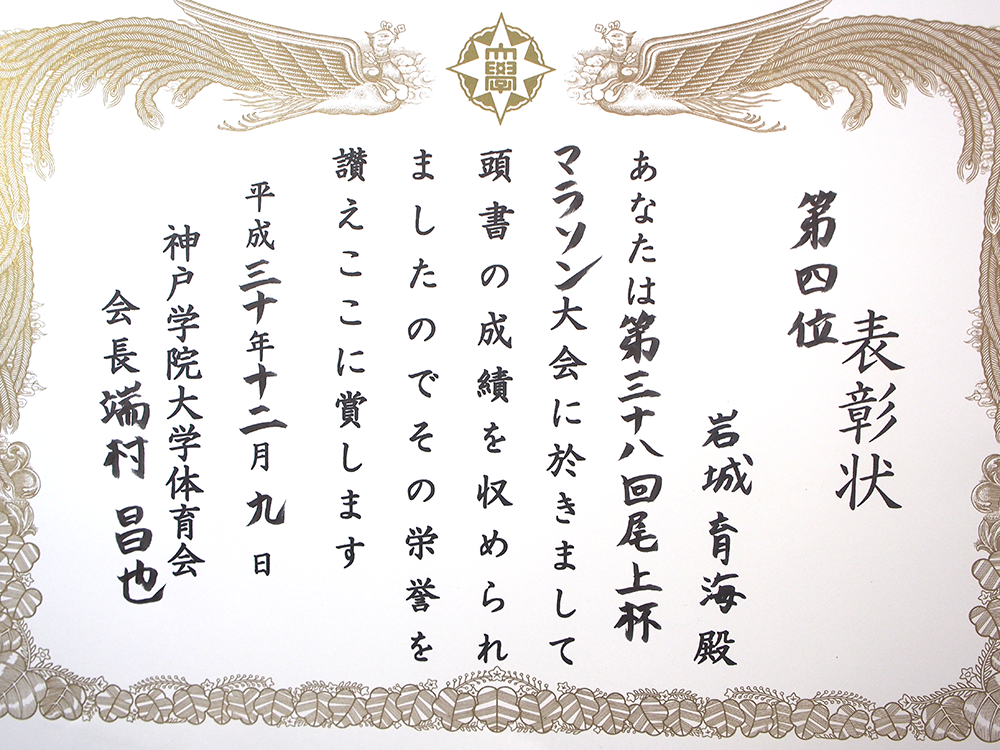 大學
表彰状
第四位
岩城育海殿
あなたは第三十八回尾上杯
マラソン大会に於きまして
頭書の成績を収められ
ましたのでその栄誉を
讃えここに賞します
平成三十年十二月九日
神戸学院大学体育会
会長端村昌也